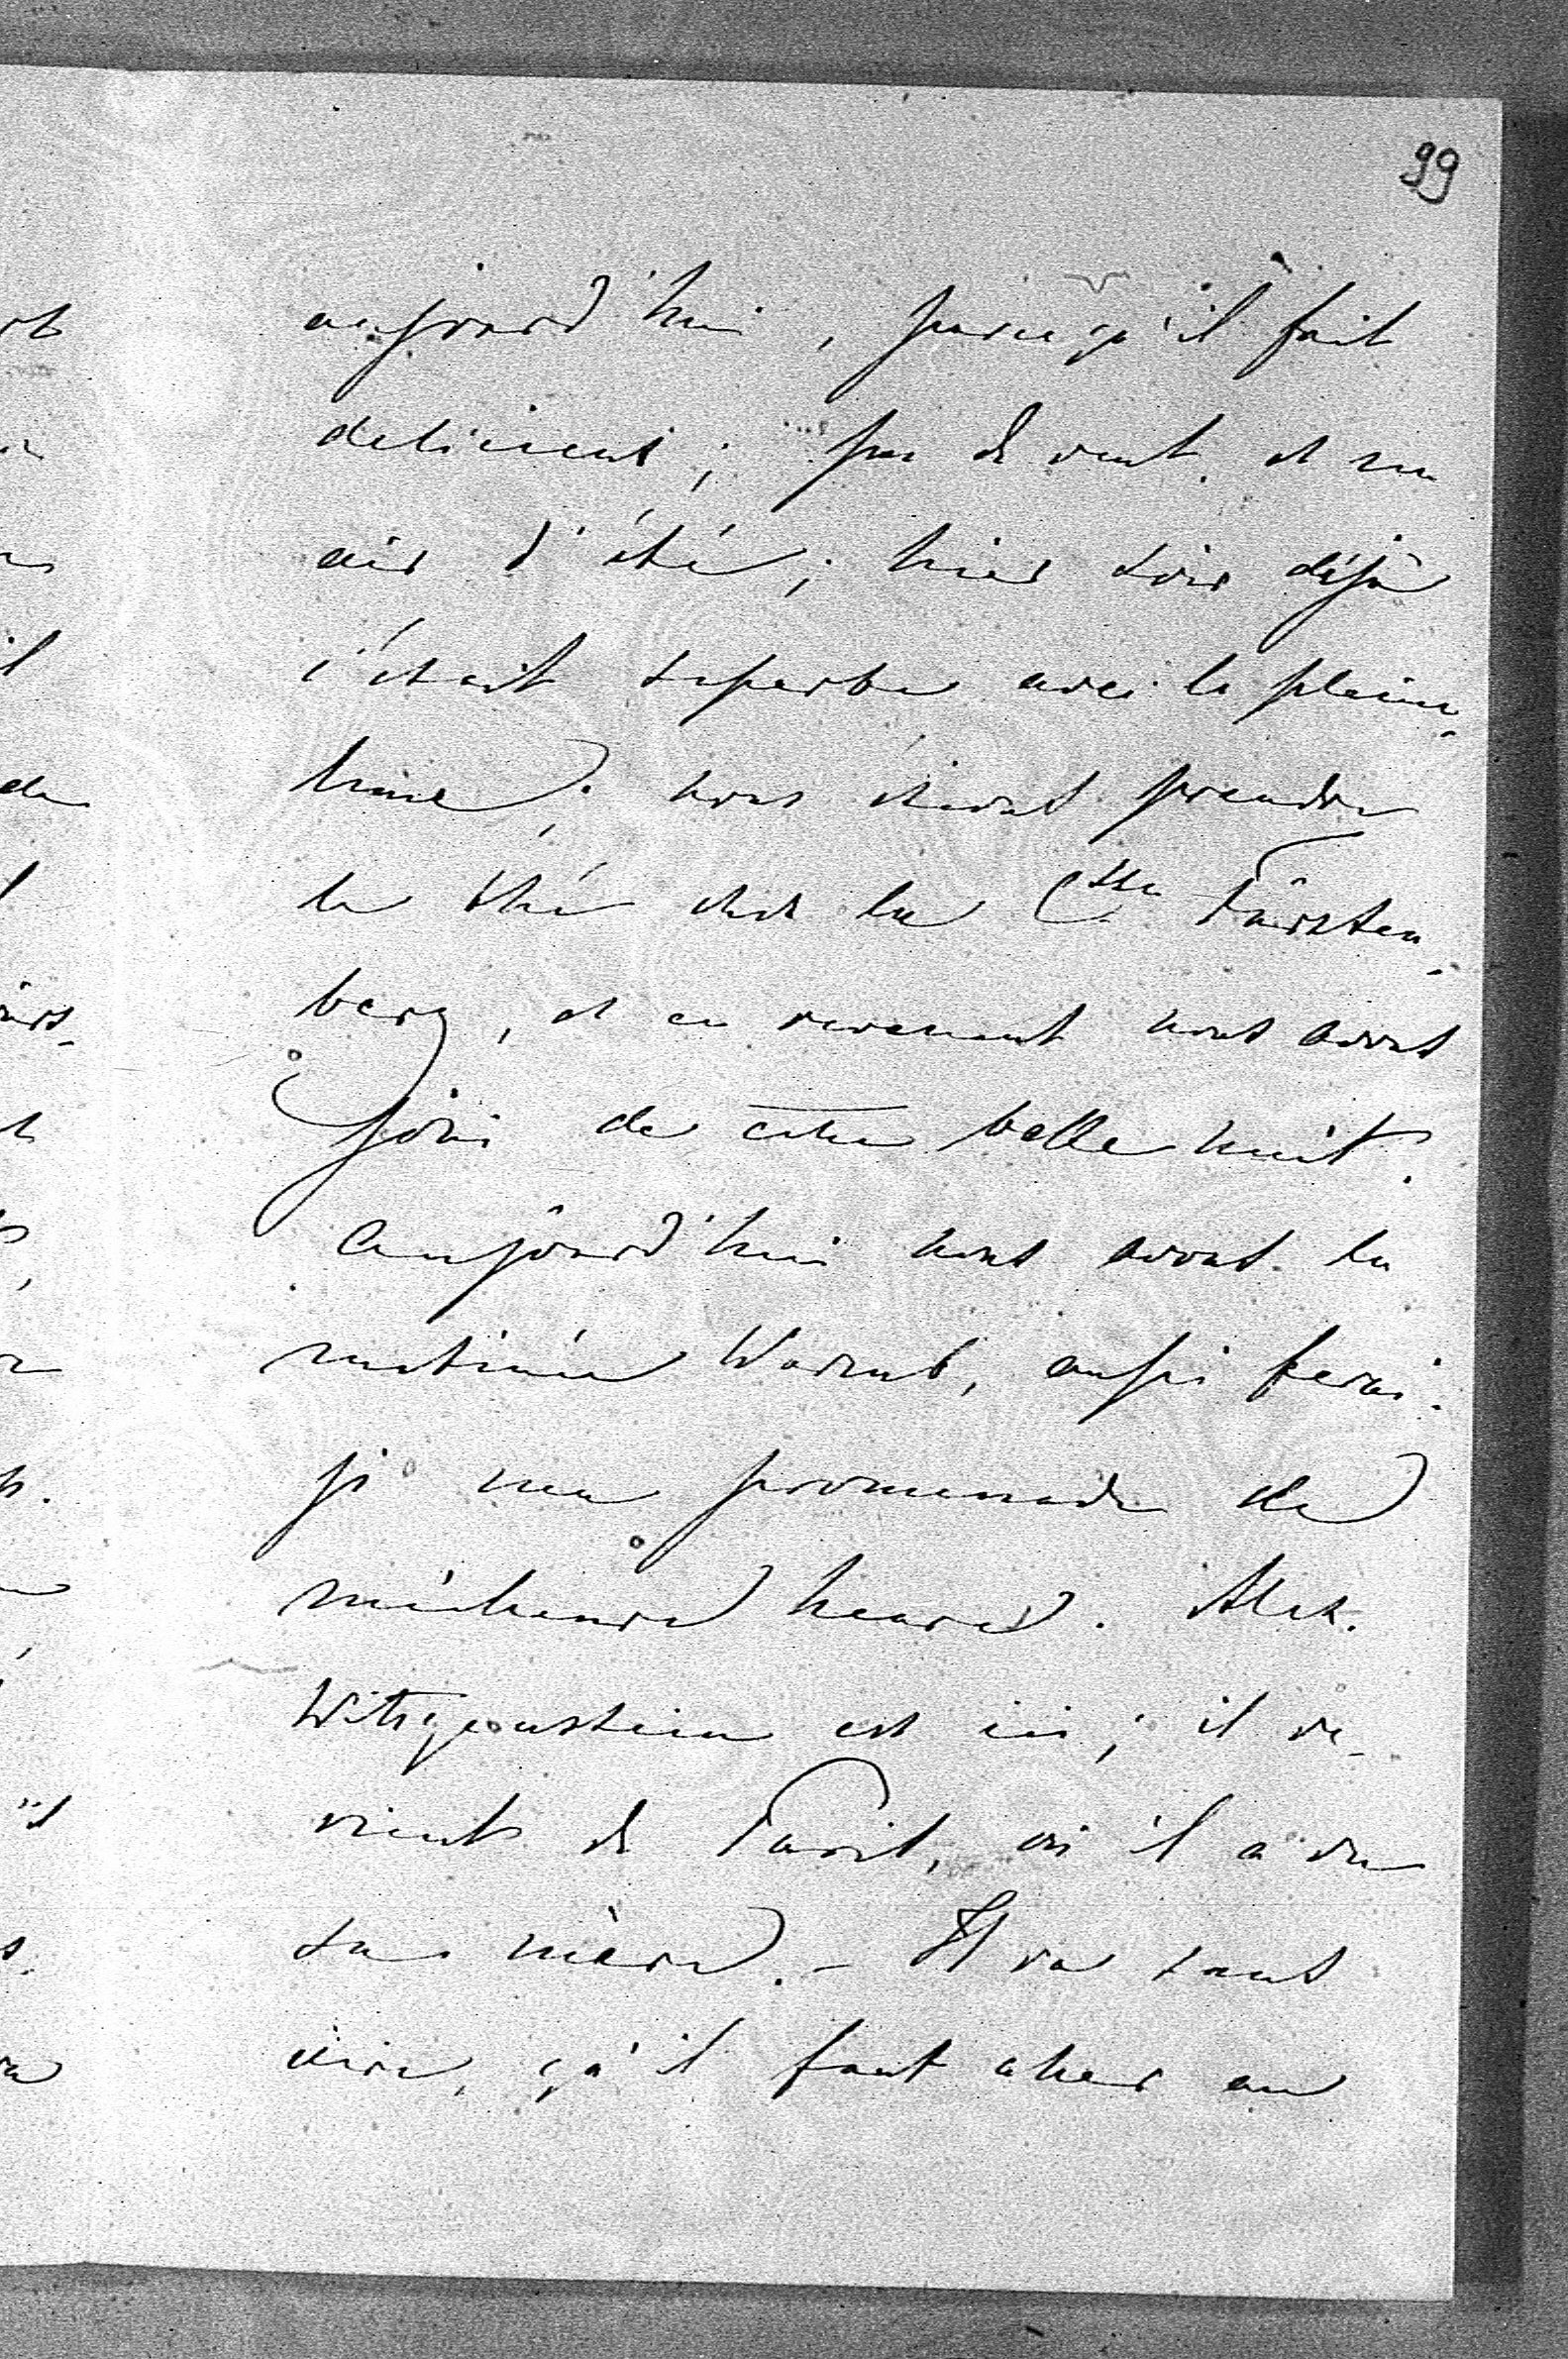 99
aujourd'hui, parcequ'il fait
delicieux; pas de vent et un
air d'été; hier soir déjà
c'était superbe avec la pleine
lune; nous étions prendre
le thé chez la Ctsse Fürsten-
berg, et en revenant nous avons
joui de cette belle nuit.
Aujourd'hui nous avons la
matinée, aussi ferai-
je ma promenade de
meilleure heure. Alex.
Witgenstein est ici; il re-
vient de Paris, où il a vu
sa mère. - Il va sans
dire, qu'il faut aller au